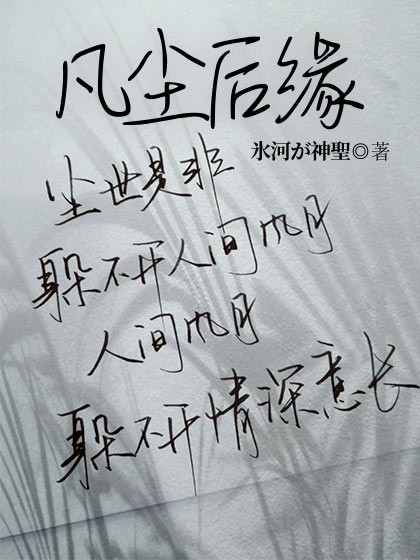 凡尘后缘
氷河が神聖◎著
尘世是非
躲不开人间风月
人间风月
躲不开情深意长